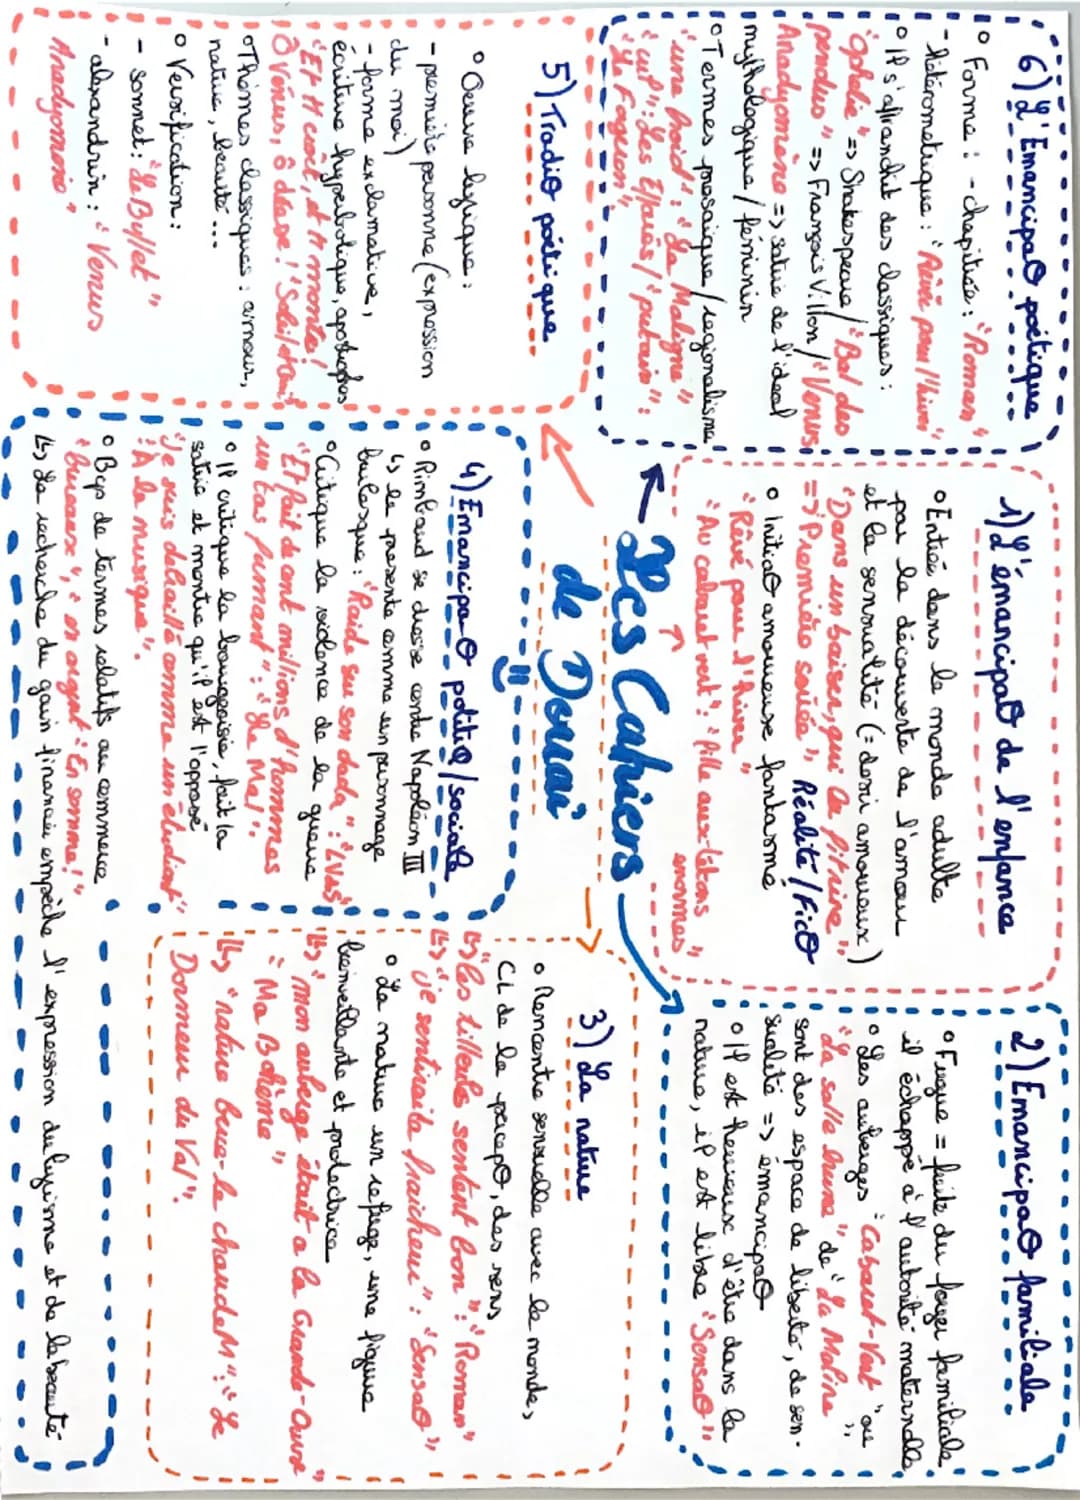 Les Cahiers
de Douai
1) L'émancipat° de l'enfance
° Entrée dans le monde adulte
par la découverte de l'amour
et la sensualité (= desir amoureux)
"Dans un baiser, qui
=> "Première soirée", Réalité/Fict°
° Initiat° amoureuse fantasmé
"Rêvé pour l'hiver"
"Au cabaret vert": "fille aux tétons
enormes"
2) Emancipat° familiale
° Fugue = fuite du foyer familiale
il échappe à l'autorité maternelle
° Les auberges "Cabaret-Vert" ou
"La salle brune" de "La Maline",
sont des espace de liberté, de sen-
sualité => émancipat°
° Il est heureux d'être dans la
nature, il est libre "Sensat°"
3) La nature
° Rencontre sensuelle avec le monde,
CL de la percept°, des sens
↳ "les tilleuls sentent bon": "Roman"
↳ "je sentirai la fraicheur": "Sensat°"
° La nature un refuge, une figure
bienveillante et protectrice
↳ "mon auberge était a la Grande-Ourse"
"Ma Bohème"
↳ "nature berce-le chaudement": "Le
Dormeur du Val".
4) Emancipat° politiq/sociale
° Rimbaud se dresse contre Napoléon III
↳ le presente comme un personnage
burlesque: "Raide sur son dada":
° Critique la violence de la guerre
"Et fait de cent millions d'hommes
un tas fumant": "Le Mal".
° Il critique la bourgeoisie, fait la
satire et montre qu'il est l'opposé
"je suis debraillé comme un étudiant"
"A la musique".
° Bcp de termes relatifs au commerce
"bureaux", "en argent" "En somme!"
↳ La recherche du gain financier empêche l'expression du lyrisme et de la beauté
5) Tradit° poétique
° Œuvre lyrique:
- première personne (expression
du moi)
- forme exclamative,
écriture hyperbolique, apostrophes
"Et H croit, et H montre!
Ô Vénus, ô déesse! "Soleil et Chair"
° Thèmes classiques: amour,
nature, beauté...
° Versification:
- sonnet: "Le Buffet"
- alexandrin: "Venus
Anadyomène"
6) L'Emancipat° poétique
° Forme: - chapitrée: "Roman"
- hétérometrique: "Rêvé pour l'hiver"
° Il s'affranchit des classiques:
"Ophélie" => Shakespeare / "Bal des
pendus" => François Villon / "Venus
Anadyomène => satire de l'idéal
mythologique / féminin
° Termes prosaïque / regionalisme
"une froid": "La Maligne"
"cul": Les Effarés / "putain":
"Le Forgeron"